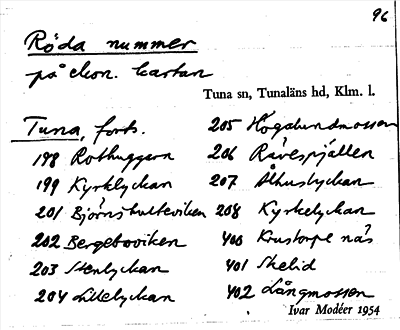 96
Röda nummer
på ekon. kartan
Tuna sn, Tunaläns hd, Klm. l.
Tuna, forts.
198 Rothuggern
199 Kyrklyckan
201 Björnshulteviken
202 Bergeboviken
203 Stenlyckan
204 Lillelyckan
205 Högalundmossen
206 Rävespjällen
207 Ålhuslyckan
208 Kyrkelyckan
400 Krustorpe näs
401 Skelid
402 Långmossen
Ivar Modéer 1954